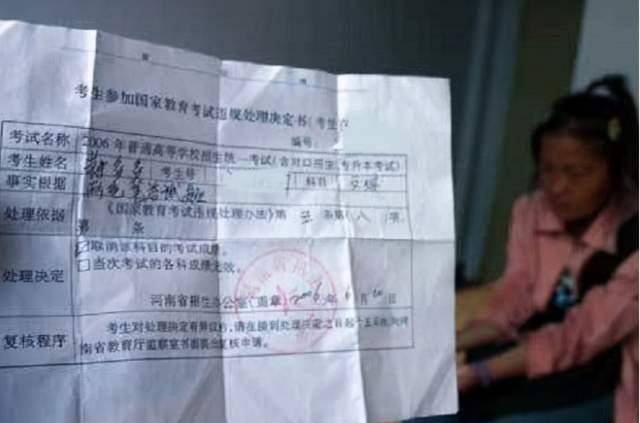 考生参加国家教育考试违规处理决定书(考生
编号:
考试名称 2006年普通高等学校招生统一考试(含对口招生,专升本考试)
考生姓名 考生号 科目 文综
事实根据
处理依据 《国家教育考试违规处理办法》第 条第(八)项,
第 条
处理决定 ☑取消该科目的考试成绩。
□当次考试的各科成绩无效。
河南省招生办公室(盖章)2006年6月20日
复核程序 考生对处理决定有异议的,请在接到处理决定之日起十五天内,向河
南省教育厅监察室书面提出复核申请。